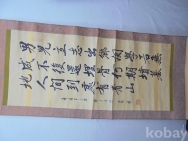 男兒立志出鄕関學若無
成不復還埋骨何期墳墓
地人間到處有青山
kobay